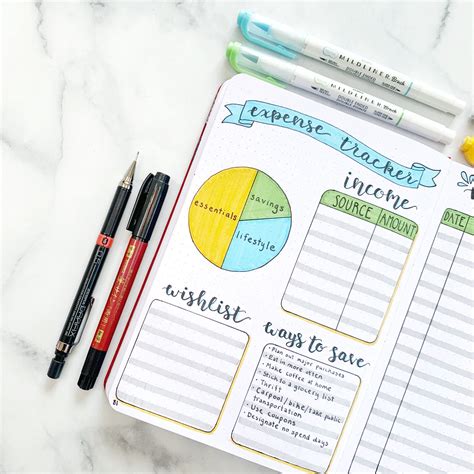 MILDLINER Brush
DOUBLE ENDED
MILDLINER Brush
DOUBLE ENDED
expense tracker
income
SOURCE AMOUNT
DATE
essentials
savings
lifestyle
wishlist
ways to save
• Plan out major purchases
• Eat in more often
• Make coffee at home
• Stick to a grocery list
• Thrift
• Carpool/bike/take public
transportation
• Use coupons
• Designate no spend days